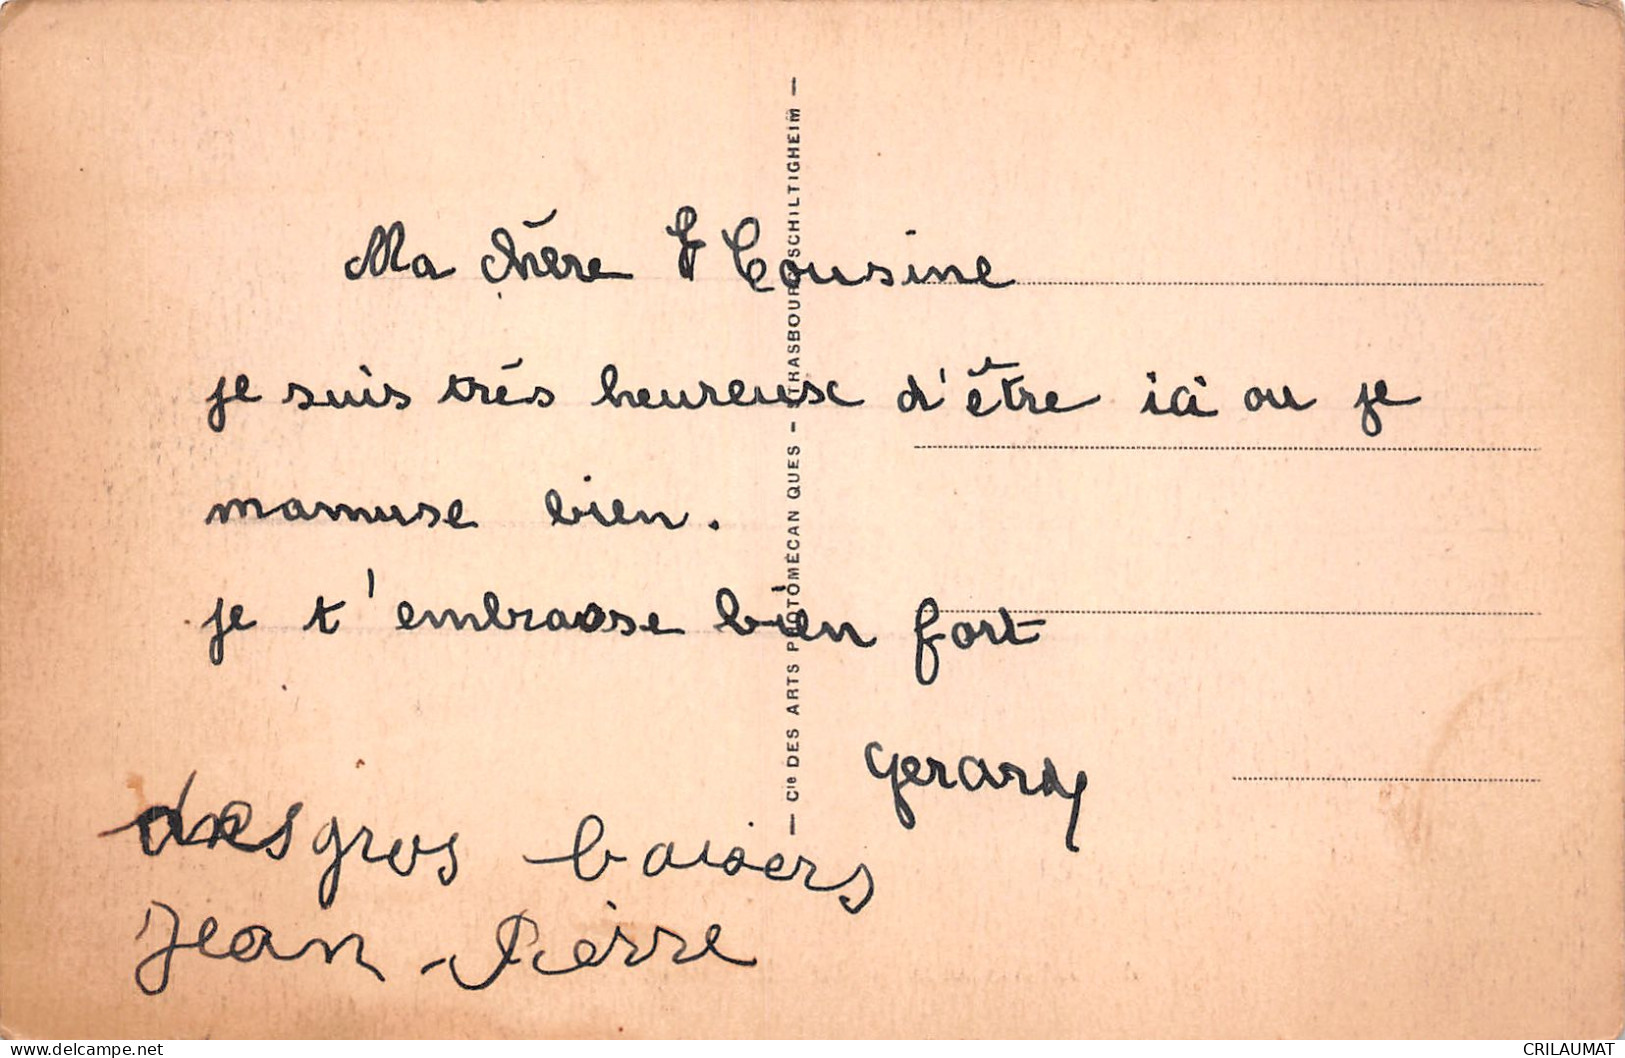 Ma chère Cousine
je suis trés heureuse d'être ici ou je
mamuse bien.
je t'embrasse bien fort
gerard
des gros baisers
Jean-Pierre
— Cie DES ARTS PHOTOMÉCANIQUES - STRASBOURG-SCHILTIGHEIM —
CRILAUMAT